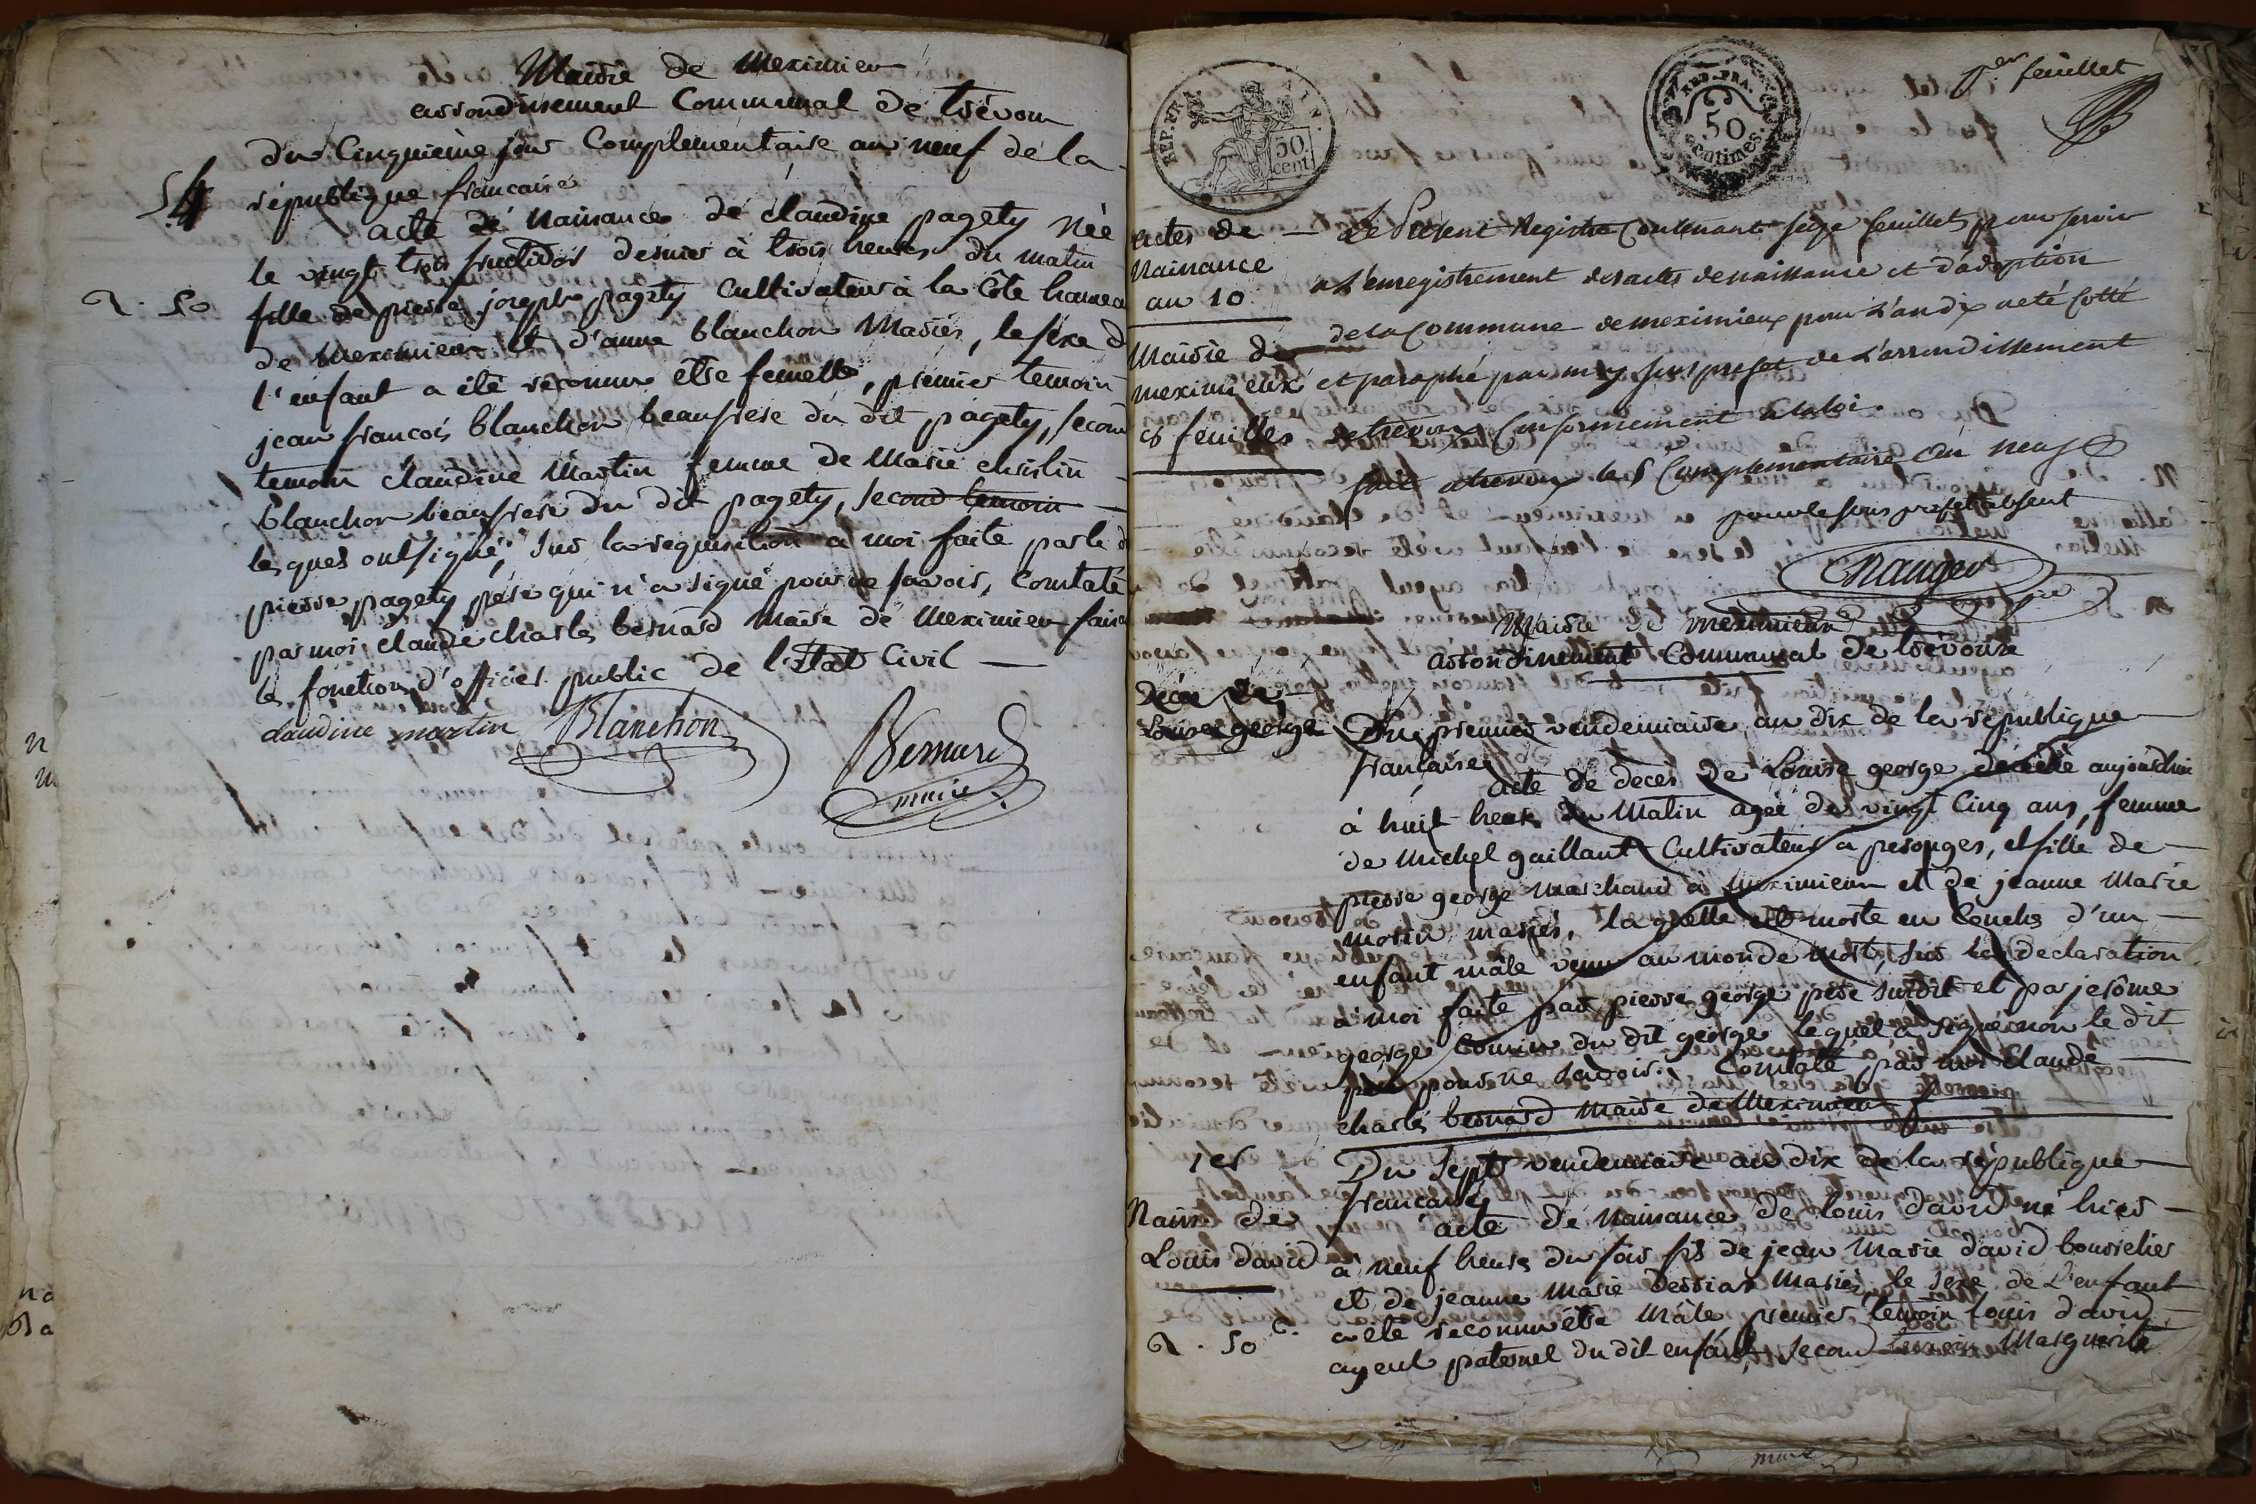 Mairie de Meximieu
arrondissement Communal de trévoux
du Cinquieme jour Complementaire an neuf de la
république francaise
54
acte de Naissance de claudine pagety Née
le vingt trois fructidor dernier à trois heures du matin
fille de pierre joseph pagety Cultivateur à la Côte hameau
2. 50
de Meximieu et d'anne blanchon Mariés, le sexe d
l'enfant a été reconnu être femelle, premier temoin
jean francois blanchon beaufrere du dit pagety, second
temoin claudine Martin femme de Marie
blanchon beaufrere du dit pagety, second temoin
lesquels ont signé, sur la requisition a moi faite par le d
pierre pagety père qui n'a signé pour ne savoir, Constaté
par moi claude charles bernard maire de Meximieu faisa
les fonctions d'officier public de l'Etat Civil
claudine martin Blanchon
Bernard
maire
1.er feuillet
REP. FRA.
50
cent.
REP. FRA.
50
Centimes
actes de
Naissance
an 10
Mairie de
meximieux
16 feuilles
Le Présent Registre Contenant seize feuillets pour servir
a L'enregistrement des actes de naissance et d'adoption
de la Commune de meximieux pour L'an dix a eté Cotté
et paraphé par moy sous prefet de L'arrondissement
de trevoux Conformement a la loi.
fait a trevoux le 5 Complementaire an neuf
pour le sous prefet absent
Mairie de meximieux
arrondissement Communal de trévoux
Decès de
Louise george
Du premier vendemiaire an dix de la république
française
acte de decès de Louise george décédé aujourdhui
à huit heures du Matin agée de vingt Cinq ans, femme
de Michel gaillant Cultivateur a perouges, et fille de
pierre george marchand à meximieu et de jeanne Marie
morin mariés, la quelle est morte en Couches d'un
enfant mâle venu au monde mort, sur la declaration
à moi faite par pierre george père susdit et par jerôme
george Cousin du dit george lequel a signé non le dit
père pour ne savoir. Constaté par moi Claude
charles bernard maire de Meximieu
1er
Du sept vendemiaire an dix de la république
francaise
Naiss de
Louis david
acte de Naissance de louis david né hier
à neuf heures du soir fils de jean Marie david bourrelier
et de jeanne Marie Mariés, le sexe de l'enfant
2. 50 c.
a eté reconnu être Mâle premier temoin louis david
ayeul paternel du dit enfant, second temoin Marguerite